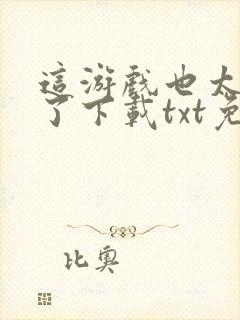 這游戲也太
了下載txt免
比奧